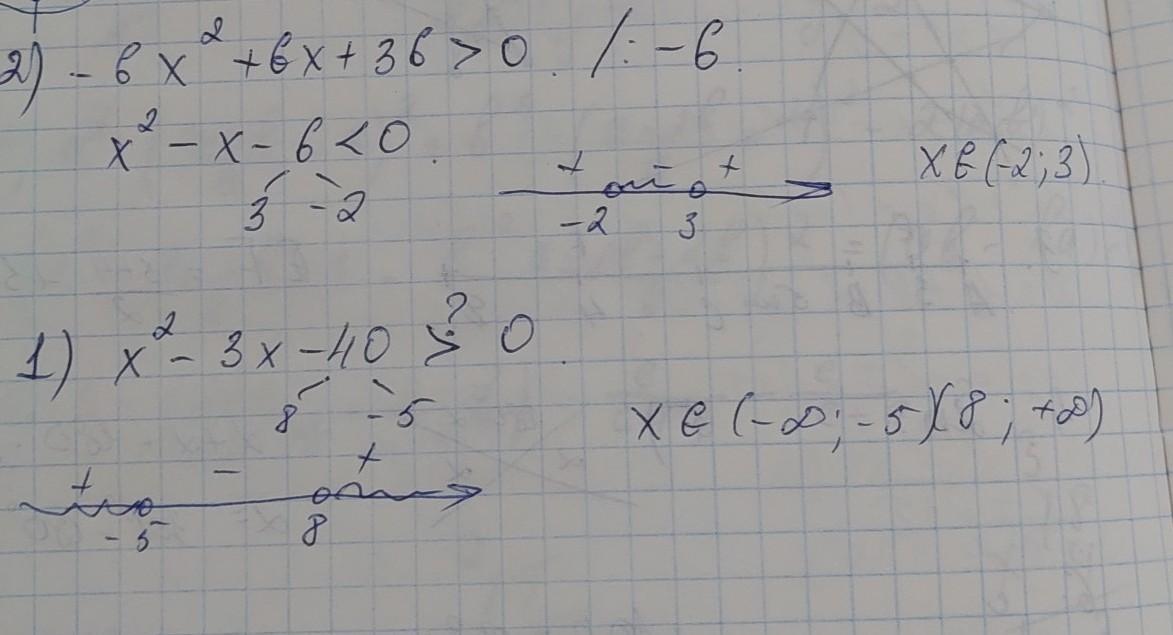 2) -6x² + 6x + 36 > 0. /: -6.
x² - x - 6 < 0.
3 -2
+ - +
-2 3
x∈(-2;3).
1) x² - 3x - 40 > 0.
?
8 -5
x∈(-∞;-5)(8;+∞)
+ - +
-5 8